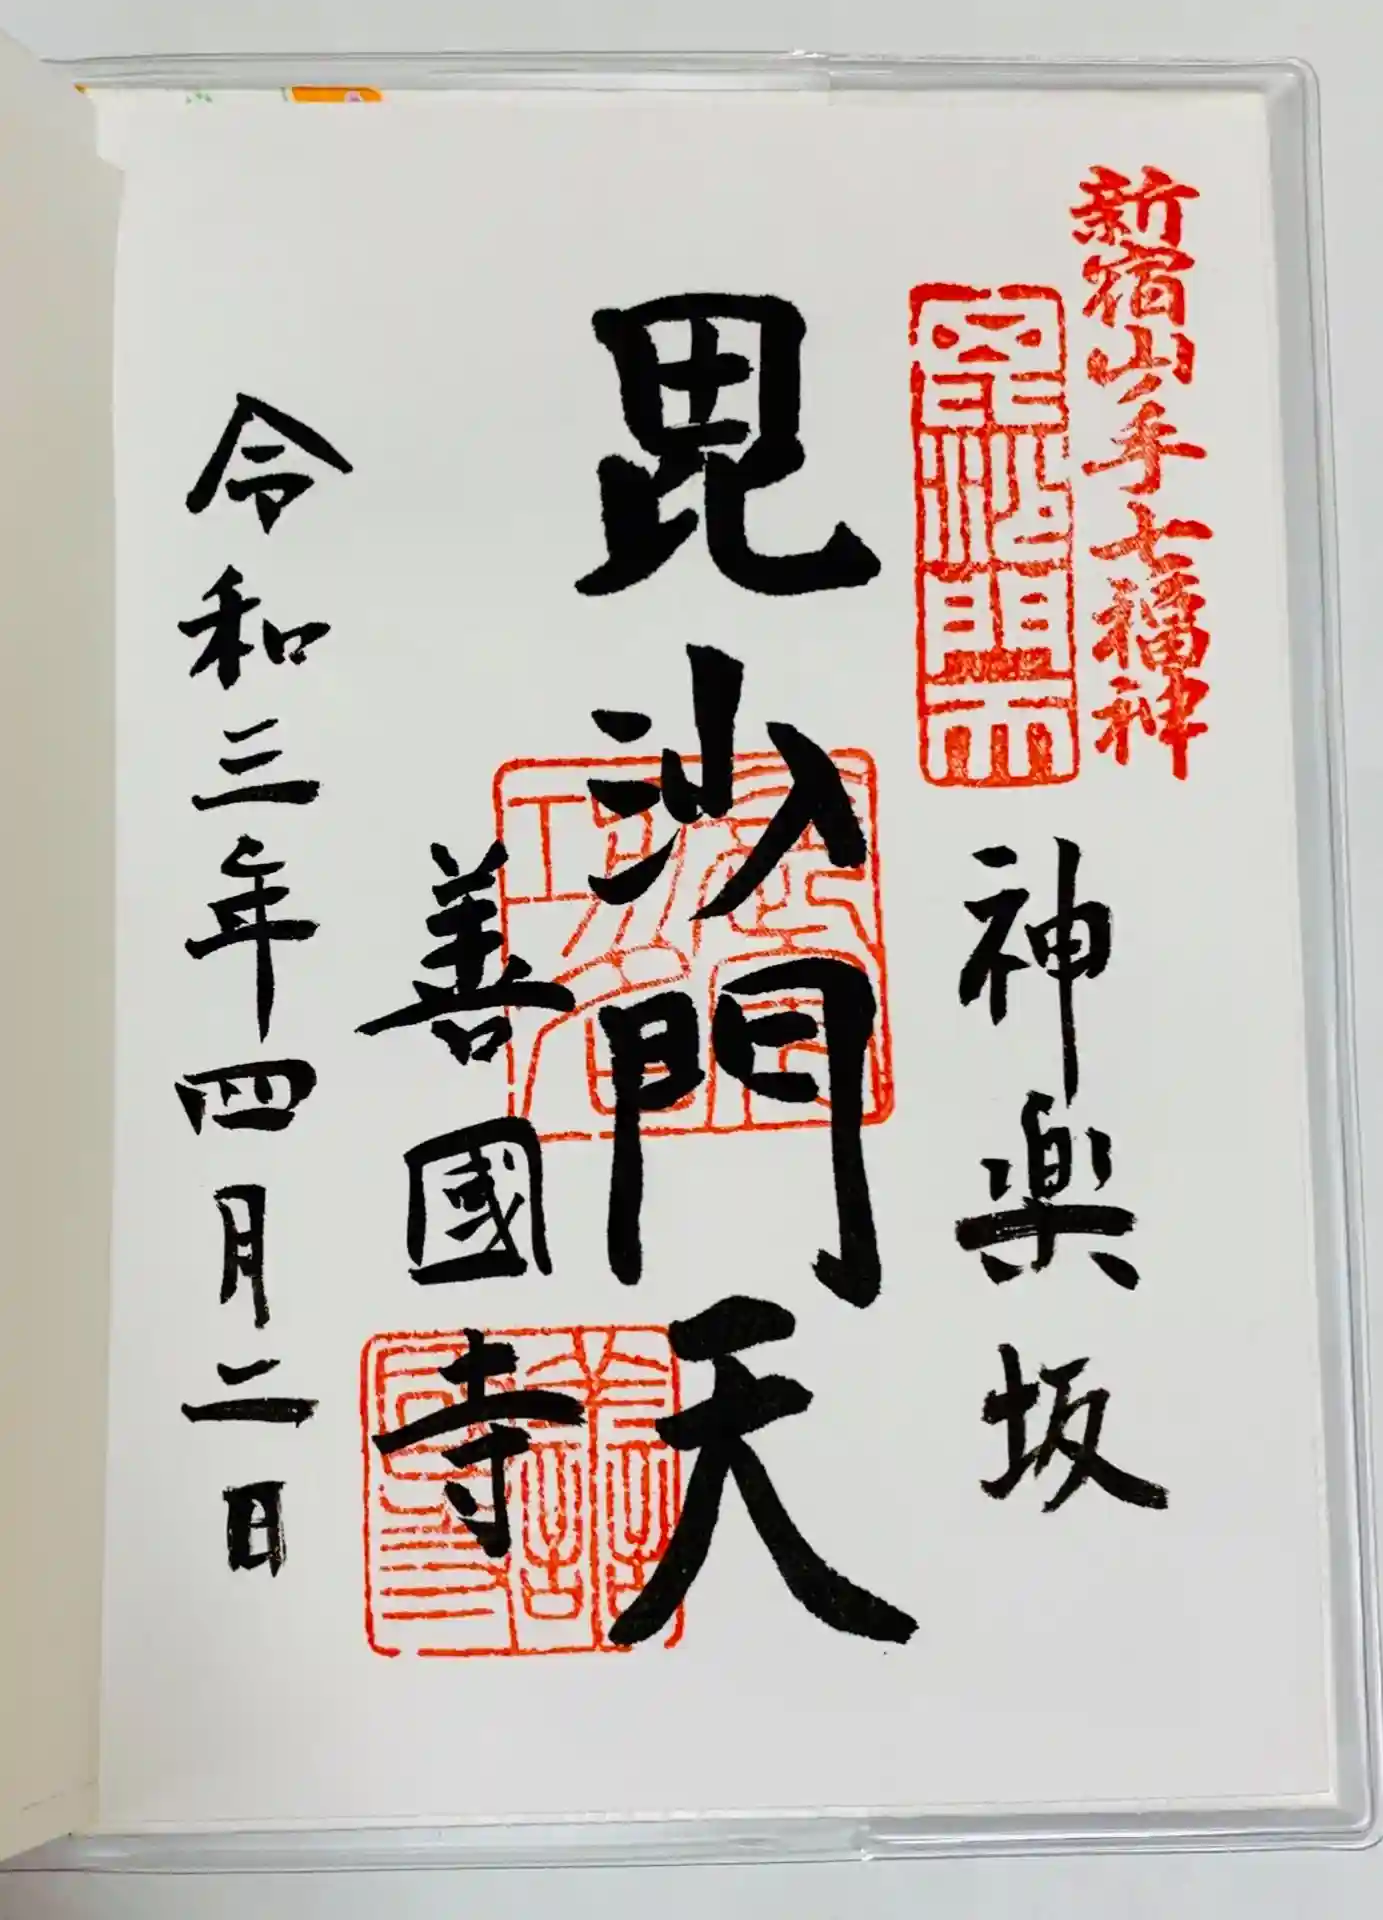 新宿山ノ手七福神
毘沙門天
神楽坂
毘沙門天
善國寺
令和三年四月二日